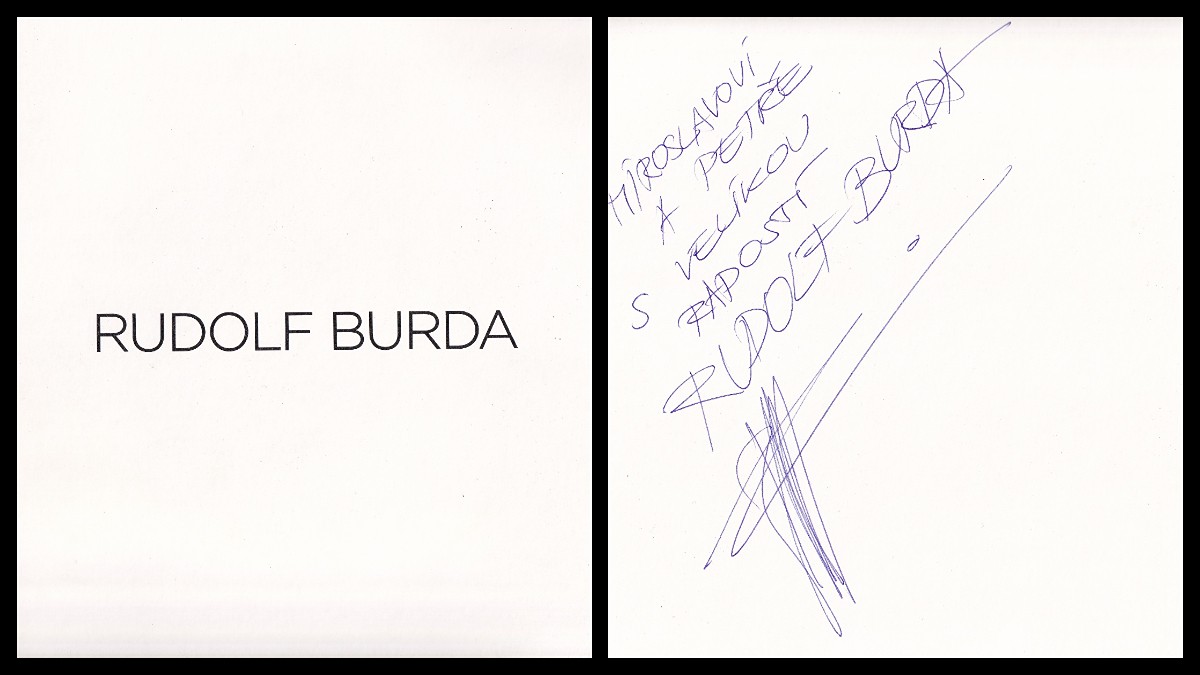 RUDOLF BURDA
MIROSLAVOVI
A PETŘE
S VELIKOU
RADOSTÍ
RUDOLF BURDA